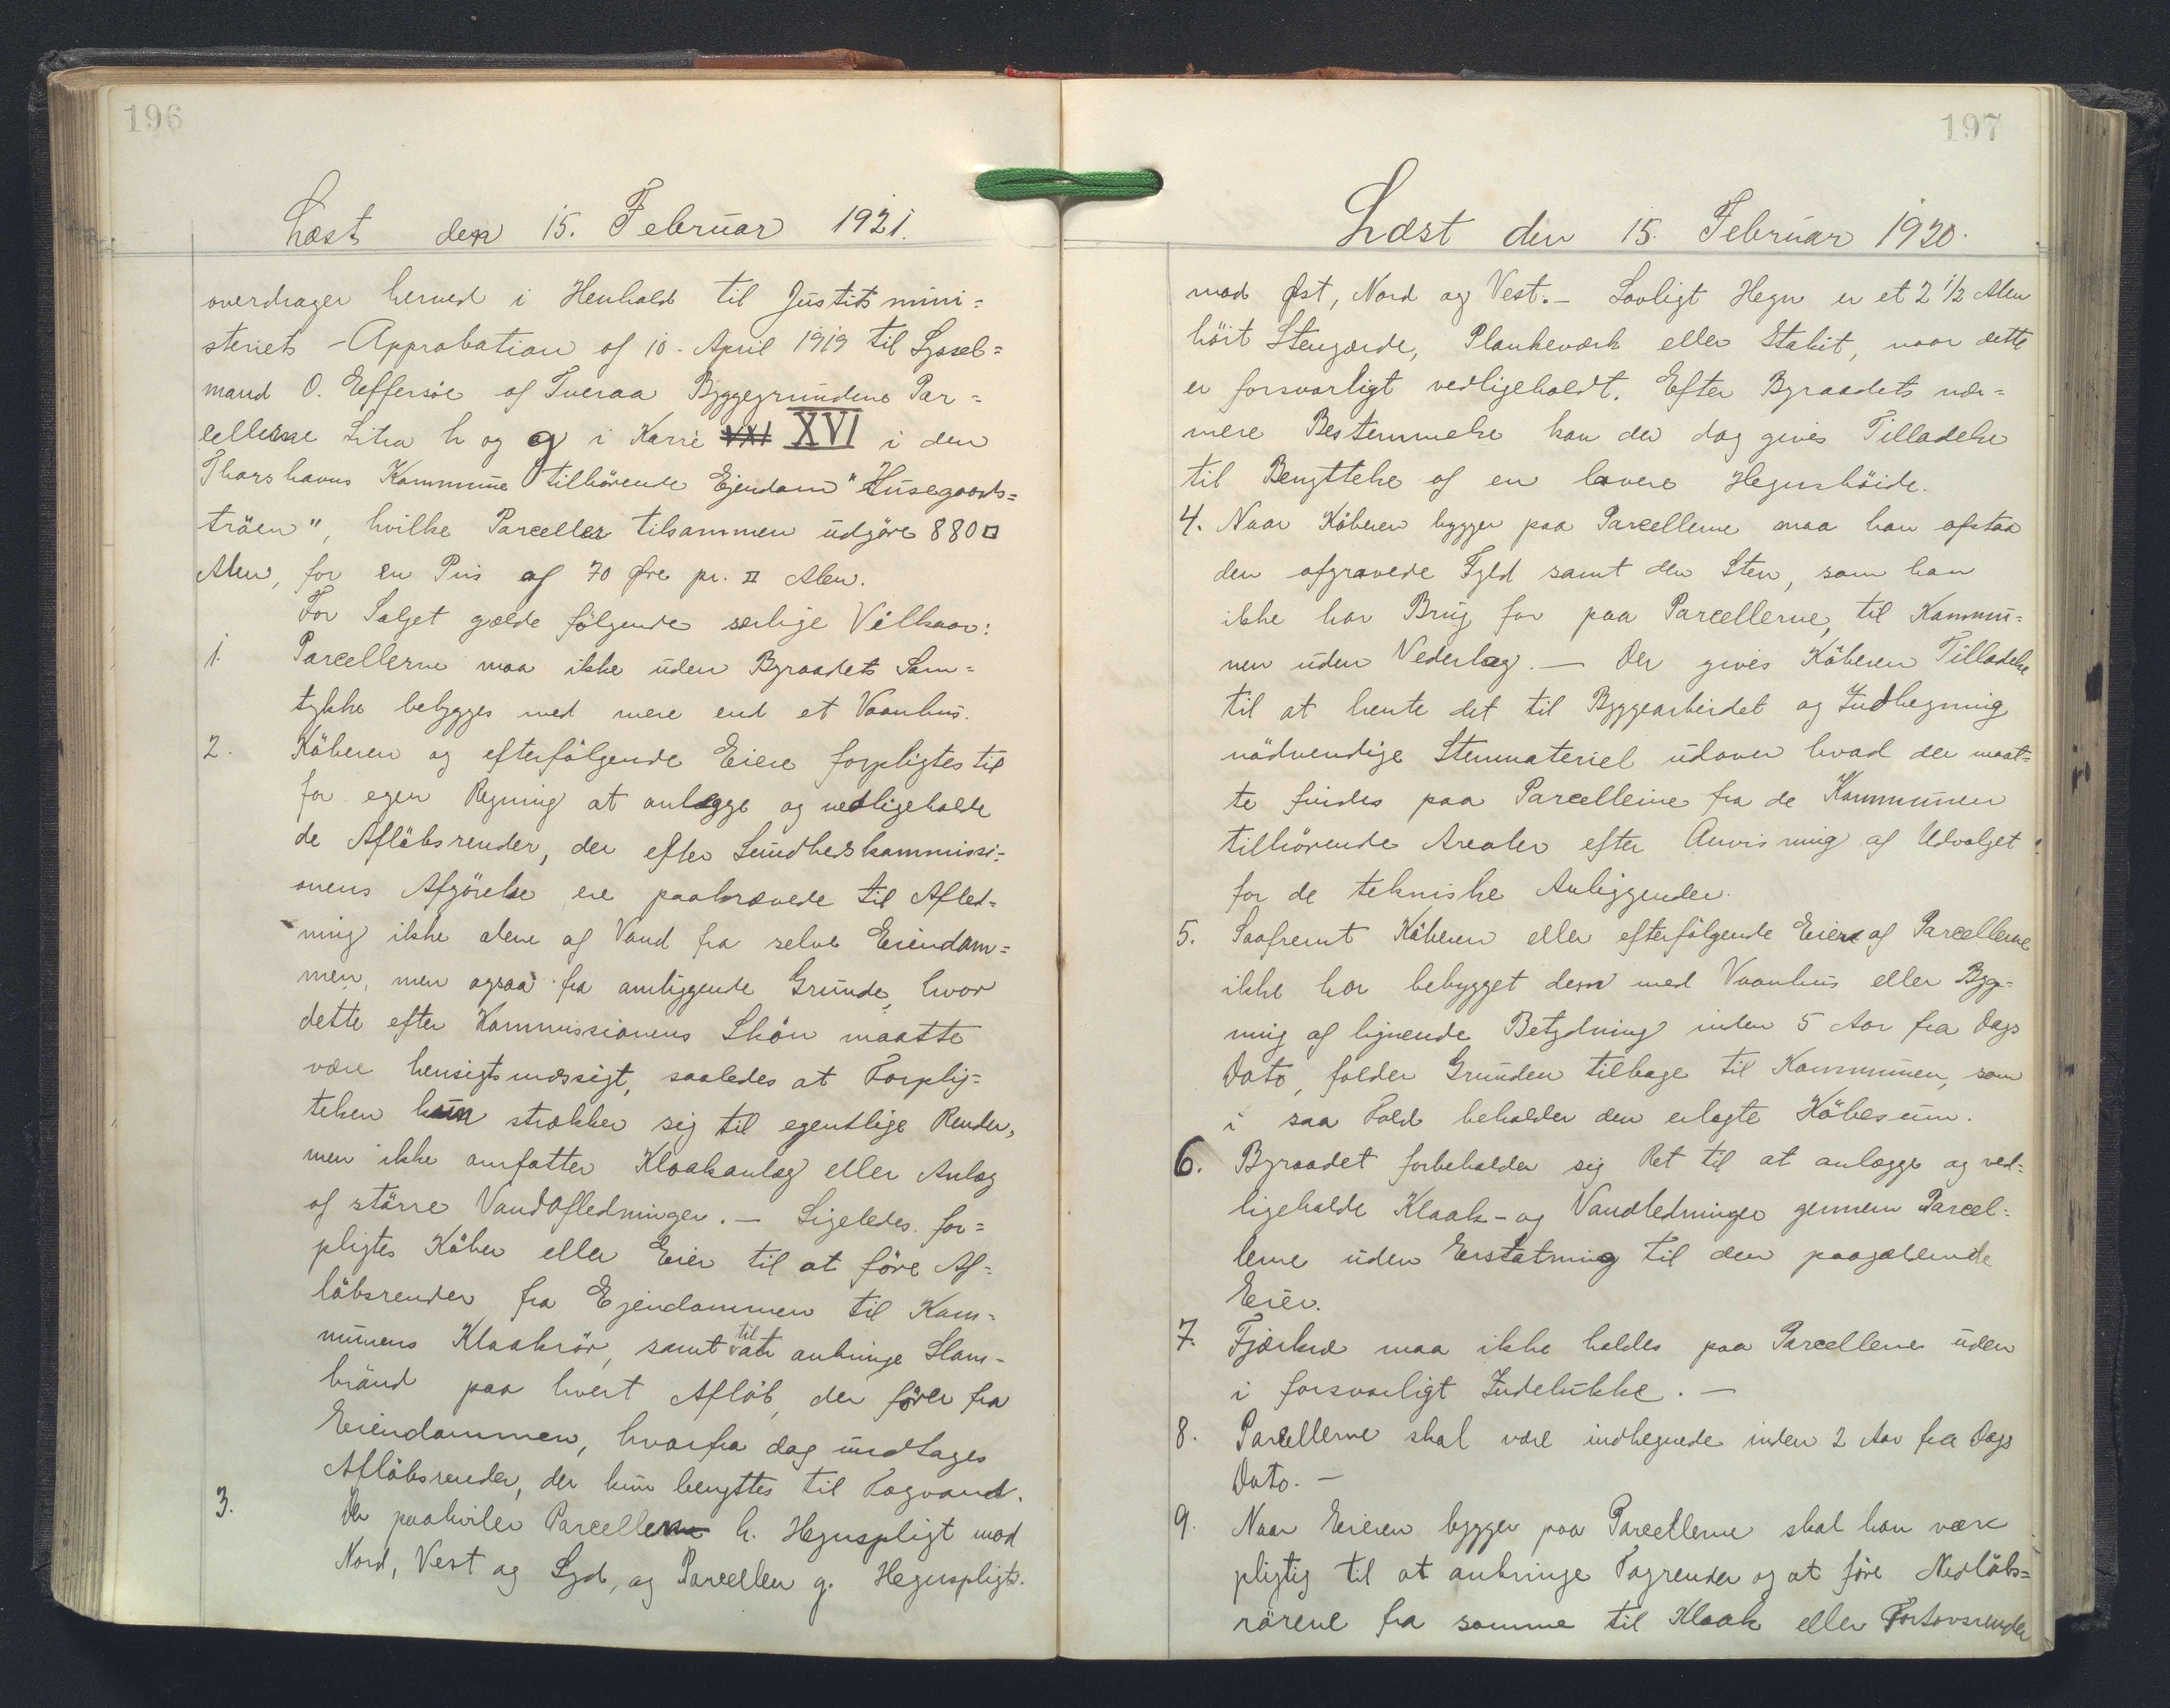 196
Læst den 15. Februar 1921.
overdrager herved i Henhold til Justitsmini=
steriets Approbation af 10. April 1919 til Syssel=
mand O. Effersøe af Tveraa Byggegrundene Par=
cellerne Litra h og g i Karré XVI i den
Thorshavns Kommune tilhörende Ejendom "Husegaards=
tröen", hvilke Parceller tilsammen udgöre 880 □
Alen, for en Pris af 70 Øre pr. □ Alen.
For Salget gælde følgende særlige Vilkaar:
1. Parcellerne maa ikke uden Byraadets Sam=
tykke bebygges med mere end et Vaanhus.
2. Köberen og efterfölgende Eiere forpligtes til
for egen Regning at anlægge og vedligeholde
de Aflöbsrender, der efter Sundhedskommissi=
onens Afgörelse ere paakrævede til Afled=
ning ikke alene af Vand fra selve Eiendom=
men, men ogsaa fra omliggende Grunde, hvor
dette efter Kommissionens Skön maatte
være hensigtsmæssigt, saaledes at Forplig=
telsen kun strækker sig til egentlige Render,
men ikke omfatter Kloakanlæg eller Anlæg
af större Vandafledninger. — Ligeledes for=
pligtes Köber eller Eier til at före Af=
löbsrender fra Ejendommen til Kom=
munens Kloakrör, samt til at anbringe Slam-
brönd paa hvert Aflöb, der förer fra
Eiendommen, hvorfra dog undtages
Aflöbsrender, der kun benyttes til Tagvand.
3. Der paahviler Parcellen h. Hegnspligt mod
Nord, Vest og Syd, og Parcellen g. Hegnspligt.
197
Læst den 15. Februar 1920.
mod Øst, Nord og Vest. — Lovligt Hegn er et 2 1/2 Alen
höit Stengærde, Plankeværk eller Stakit, naar dette
er forsvarligt vedligeholdt. Efter Byraadets nær=
mere Bestemmelse kan der dog gives Tilladelse
til Benyttelse af en lavere Hegnshöide.
4. Naar Köberen bygger paa Parcellerne maa han afstaa
den afgravede Fyld samt den Sten, som han
ikke har Brug for paa Parcellerne, til Kommu=
nen uden Vederlag. — Der gives Köberen Tilladelse
til at hente det til Byggearbeidet og Indhegning
nödvendige Stenmateriel udover hvad der maat=
te findes paa Parcellerne fra de Kommunen
tilhörende Arealer efter Anvisning af Udvalget
for de tekniske Anliggender.
5. Saafremt Köberen eller efterfölgende Eiere af Parcellerne
ikke har bebygget dem med Vaanhus eller Byg=
ning af lignende Betydning inden 5 Aar fra Dags
Dato, falder Grunden tilbage til Kommunen, som
i saa Fald beholder den erlagte Köbesum.
6. Byraadet forbeholder sig Ret til at anlægge og ved=
ligeholde Kloak- og Vandledninger gennem Parcel=
lerne uden Erstatning til den paagældende
Eier.
7. Fjærkræ maa ikke holdes paa Parcellerne uden
i forsvarligt Indelukke. —
8. Parcellerne skal være indhegnede inden 2 Aar fra Dags
Dato. —
9. Naar Eieren bygger paa Parcellerne skal han være
pligtig til at anbringe Tagrender og at före Nedlöbs=
rörene fra samme til Kloak eller Fortovsrender